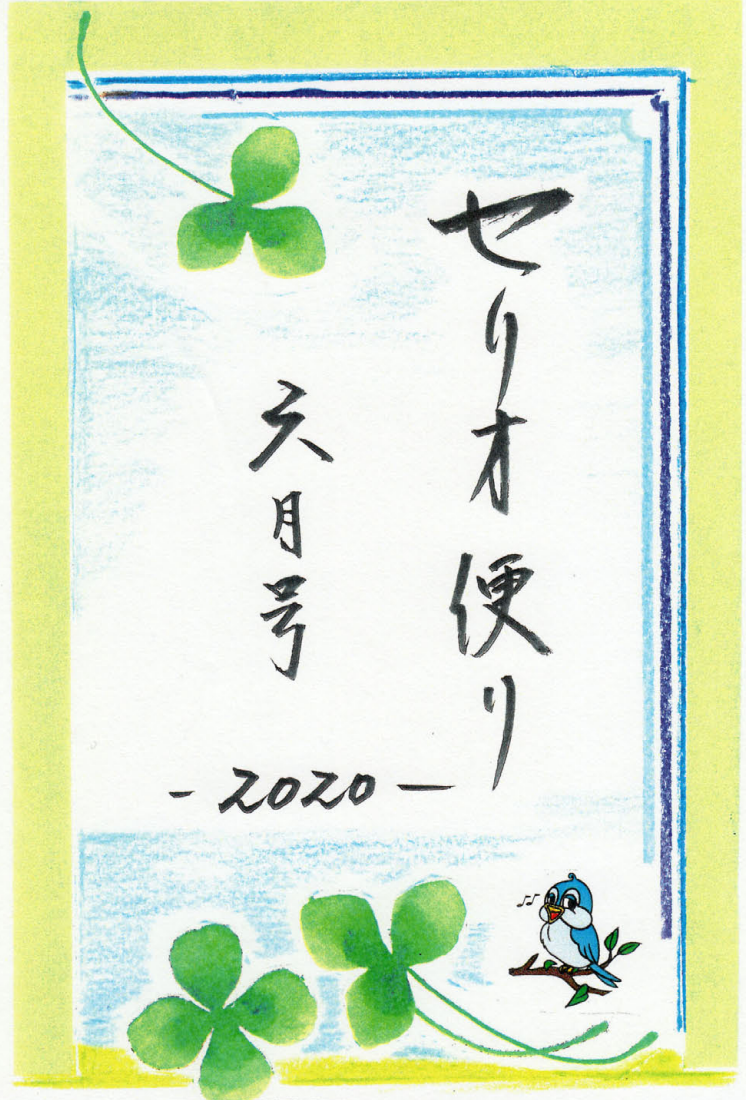 セリオ便り
六月号
-2020-